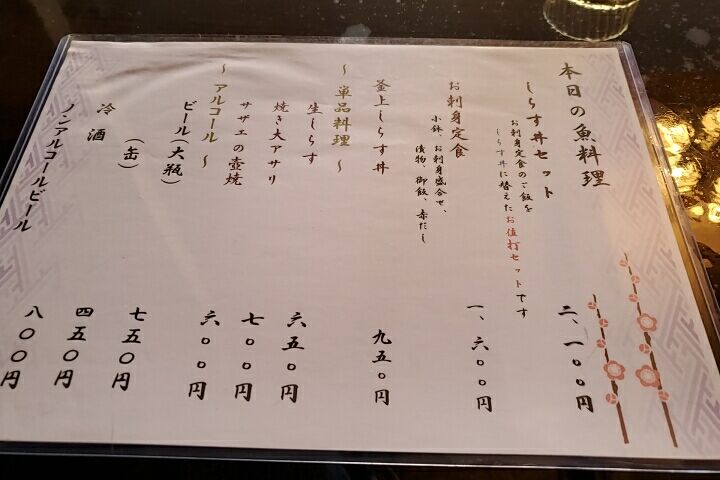 本日の魚料理
しらす丼セット 二、一〇〇円
お刺身定食のご飯を
しらす丼に替えたお値打セットです
お刺身定食 一、六〇〇円
小鉢、お刺身盛合せ、
漬物、御飯、赤だし
釜上しらす丼 九五〇円
~ 単品料理 ~
生しらす 六五〇円
焼き大アサリ 七〇〇円
サザエの壺焼 六〇〇円
~ アルコール ~
ビール(大瓶) 七五〇円
(缶) 四五〇円
冷酒 八〇〇円
ノンアルコールビール